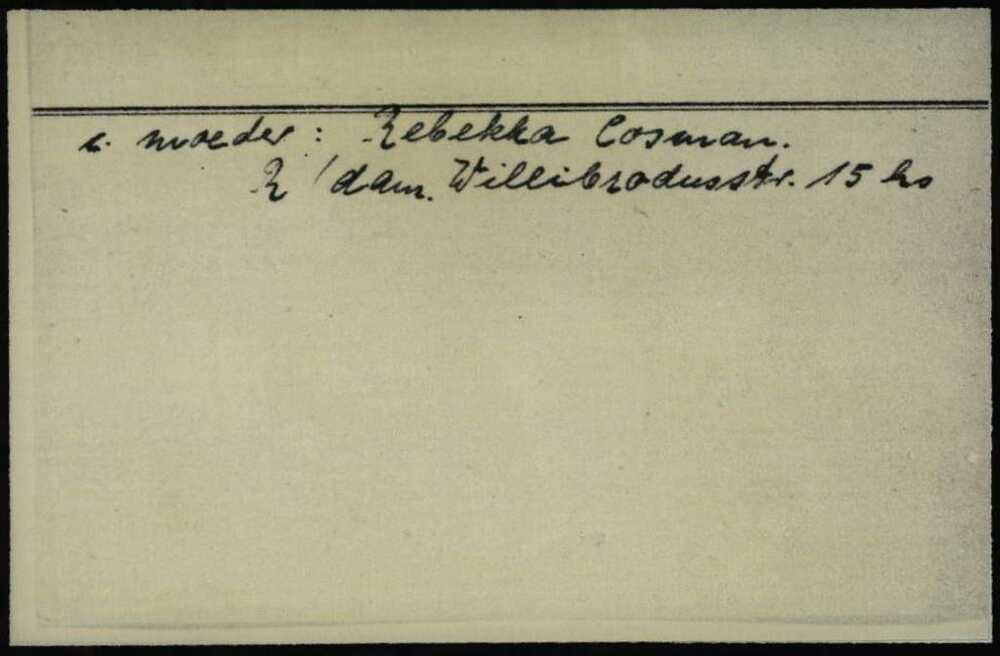 s. moeder: Rebekka Cosman.
R'dam. Willibrodusstr. 15 hs